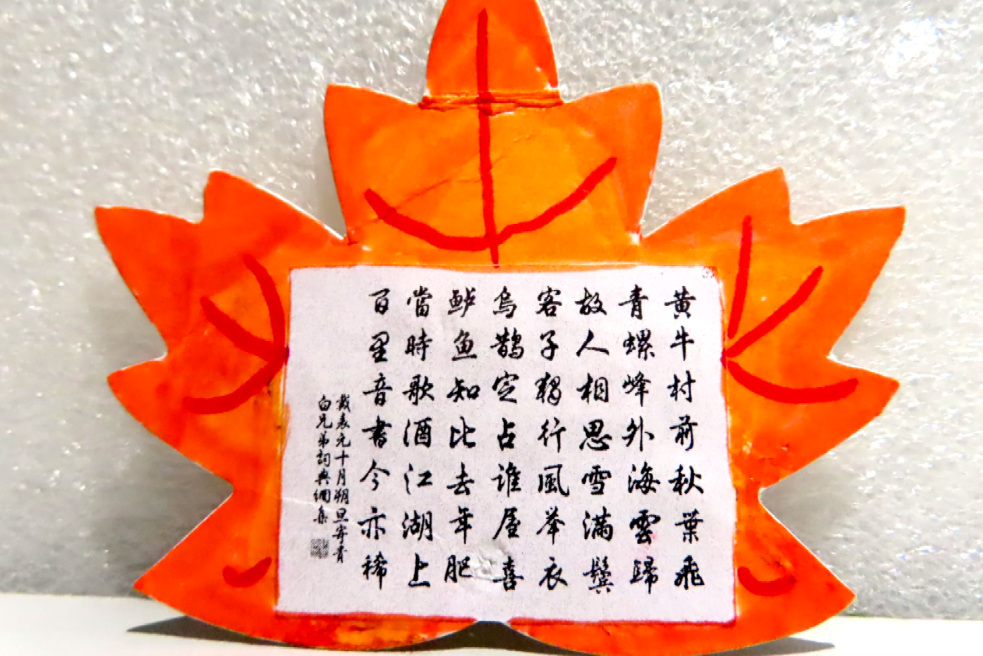 黄牛村前秋葉飛
青螺峰外海雲歸
故人相思雪滿鬢
客子獨行風举衣
烏鵲空占谁屋喜
鲈魚知比去年肥
當時歌酒江湖上
百里音書今亦稀
戴表元十月朔旦寄青
白兄弟詞典網集